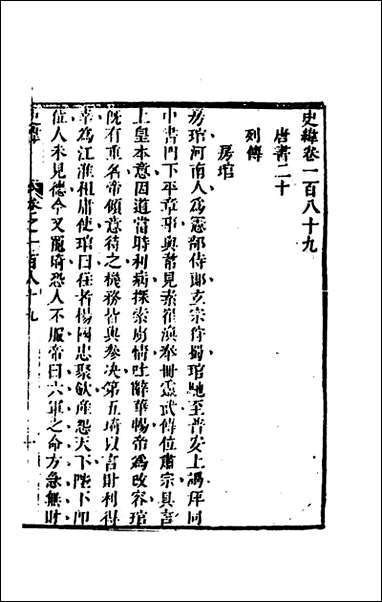 史緯卷一百八十九
唐書二十
列傳
房琯
房琯河南人為憲部侍郎玄宗狩蜀琯馳至普安上謁拜同
中書門下平章事與韋見素崔渙奉冊靈武傳位肅宗具言
上皇本意因道當時利病探索虜情吐辭華暢帝為改容琯
既有重名帝傾意待之機務皆與參決第五琦以言財利得
幸為江淮租庸使琯曰往者楊國忠聚斂產怨天下陛下即
位人未見德今又寵琦恐人不服帝曰六軍之命方急無財
卷之一百八十九